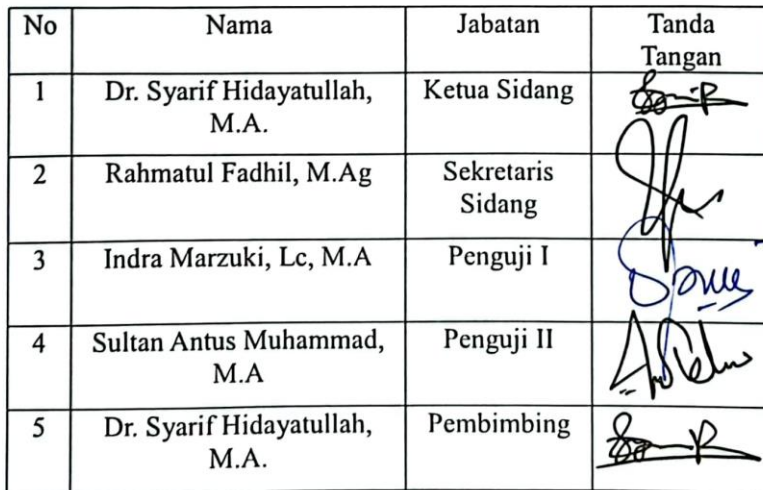 No Nama Jabatan Tanda
Tangan
1 Dr. Syarif Hidayatullah, Ketua Sidang
M.A.
2 Rahmatul Fadhil, M.Ag Sekretaris
Sidang
3 Indra Marzuki, Lc, M.A Penguji I
4 Sultan Antus Muhammad, Penguji II
M.A
5 Dr. Syarif Hidayatullah, Pembimbing
M.A.